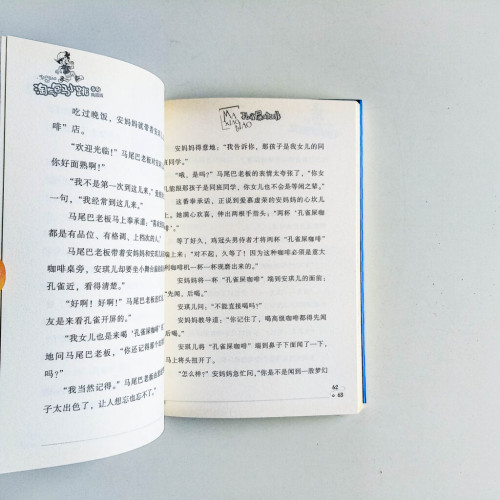 淘气包马小跳
吃过晚饭,安妈妈就带着
啡”店。
“欢迎光临!”马尾巴老板
你好面熟啊!”
“我不是第一次到这儿来,”
一句,“我经常到这儿来。”
马尾巴老板马上奉承道:
都是有品位、有格调、上档次的人。”
马尾巴老板带着安妈妈和安琪儿
咖啡桌旁,安琪儿却要坐小舞台
孔雀近,看得清楚。”
“好啊!好啊!”马尾巴老板
友是来看孔雀开屏的。”
“我女儿也是来喝‘孔雀屎咖啡’
地问马尾巴老板,“你还记得那个
吗?”
“我当然记得。”马尾巴老板
子太出色了,让人想忘也忘不了。”
MA XIAO TIAO
孔雀屎咖啡
安妈妈得意地:“我告诉你,那孩子是我女儿的同
同学。”
“哦,是吗?”马尾巴老板的表情太夸张了,“你女
儿能跟那孩子是同班同学,你女儿也不会是等闲之辈。”
这番奉承话,正说到爱慕虚荣的安妈妈的心坎儿
上。她满心欢喜,伸出两根手指头:“两杯‘孔雀屎咖
啡’。”
等了好久,鸡冠头男侍者才将两杯“孔雀屎咖啡”
“对不起,久等了!因为这种咖啡必须是意大
利咖啡机一杯一杯现磨出来的。”
安妈妈将一杯“孔雀屎咖啡”端到安琪儿的面前:
“先闻,后喝。”
安琪儿问:“不能直接喝吗?”
安妈妈教导道:“你记住了,喝高级咖啡都得先闻
后喝。”
安琪儿将“孔雀屎咖啡”端到鼻子下面闻了一下,
马上将头扭开了。
“怎么样?”安妈妈急忙问,“你是不是闻到一股梦幻
62
63